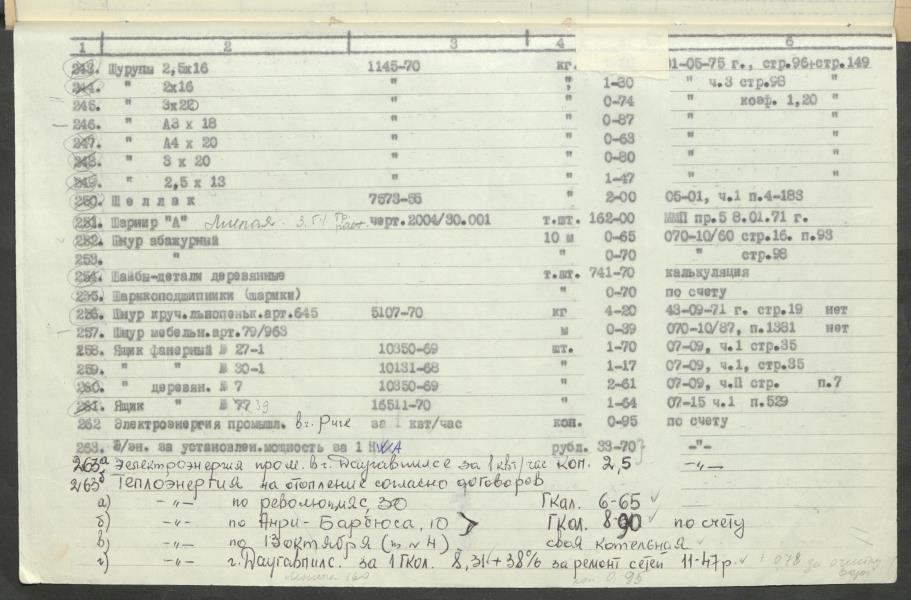 1 2 3 4 6
243. Шурупы 2,5х16 1145-70 кг. 01-05-75 г., стр.96+стр.149
244. " 2х16 " " 1-30 " ч.3 стр.98 "
245. " 3х20 " " 0-74 " коэф. 1,20 "
246. " А3 х 18 " " 0-87 " "
247. " А4 х 20 " " 0-63 " "
248. " 3 х 20 " " 0-80 " "
249. " 2,5 х 13 " " 1-47 " "
250. Шеллак 7573-55 " 2-00 05-01, ч.1 п.4-183
251. Шарнир "А" черт.2004/30.001 т.шт. 162-00 ММП пр.5 8.01.71 г.
252. Шнур абажурный 10 м 0-65 070-10/60 стр.16. п.93
253. " " 0-70 " стр.98
254. Шайбы-детали деревянные т.шт. 741-70 калькуляция
255. Шарикоподшипники (шарики) " 0-70 по счету
256. Шнур круч.льнопеньк.арт.645 5107-70 кг 4-20 43-09-71 г. стр.19 нет
257. Шнур мебельн.арт.79/963 м 0-39 070-10/87, п.1381 нет
258. Ящик фанерный № 27-1 10350-69 шт. 1-70 07-09, ч.1 стр.35
259. " " № 30-1 10131-68 " 1-17 07-09, ч.1, стр.35
260. " деревян. № 7 10350-69 " 2-61 07-09, ч.П стр. п.7
261. Ящик " № 77 39 16511-70 " 1-64 07-15 ч.1 п.529
262 Электроэнергия промышл. в г. Риге за 1 квт/час коп. 0-95 по счету
263. Э/эн. за установлен.мощность за 1 КVA рубл. 33-70 -"-
263а Электроэнергия пром. в г. Даугавпилсе за 1 квт/час коп. 2,5 -"-
263б Теплоэнергия на отопление согласно договоров
а) -"- по революцияс, 30 Гкал. 6-65
б) -"- по Анри-Барбюса, 10 Гкал. 8-90 по счёту
в) -"- по 13 октября (ц. № 4) своя котельная
г) -"- г. Даугавпилс. за 1 Гкал. 8,31+38% за ремонт сетей 11-47р. + 0,78 за очистку
коп 0,95